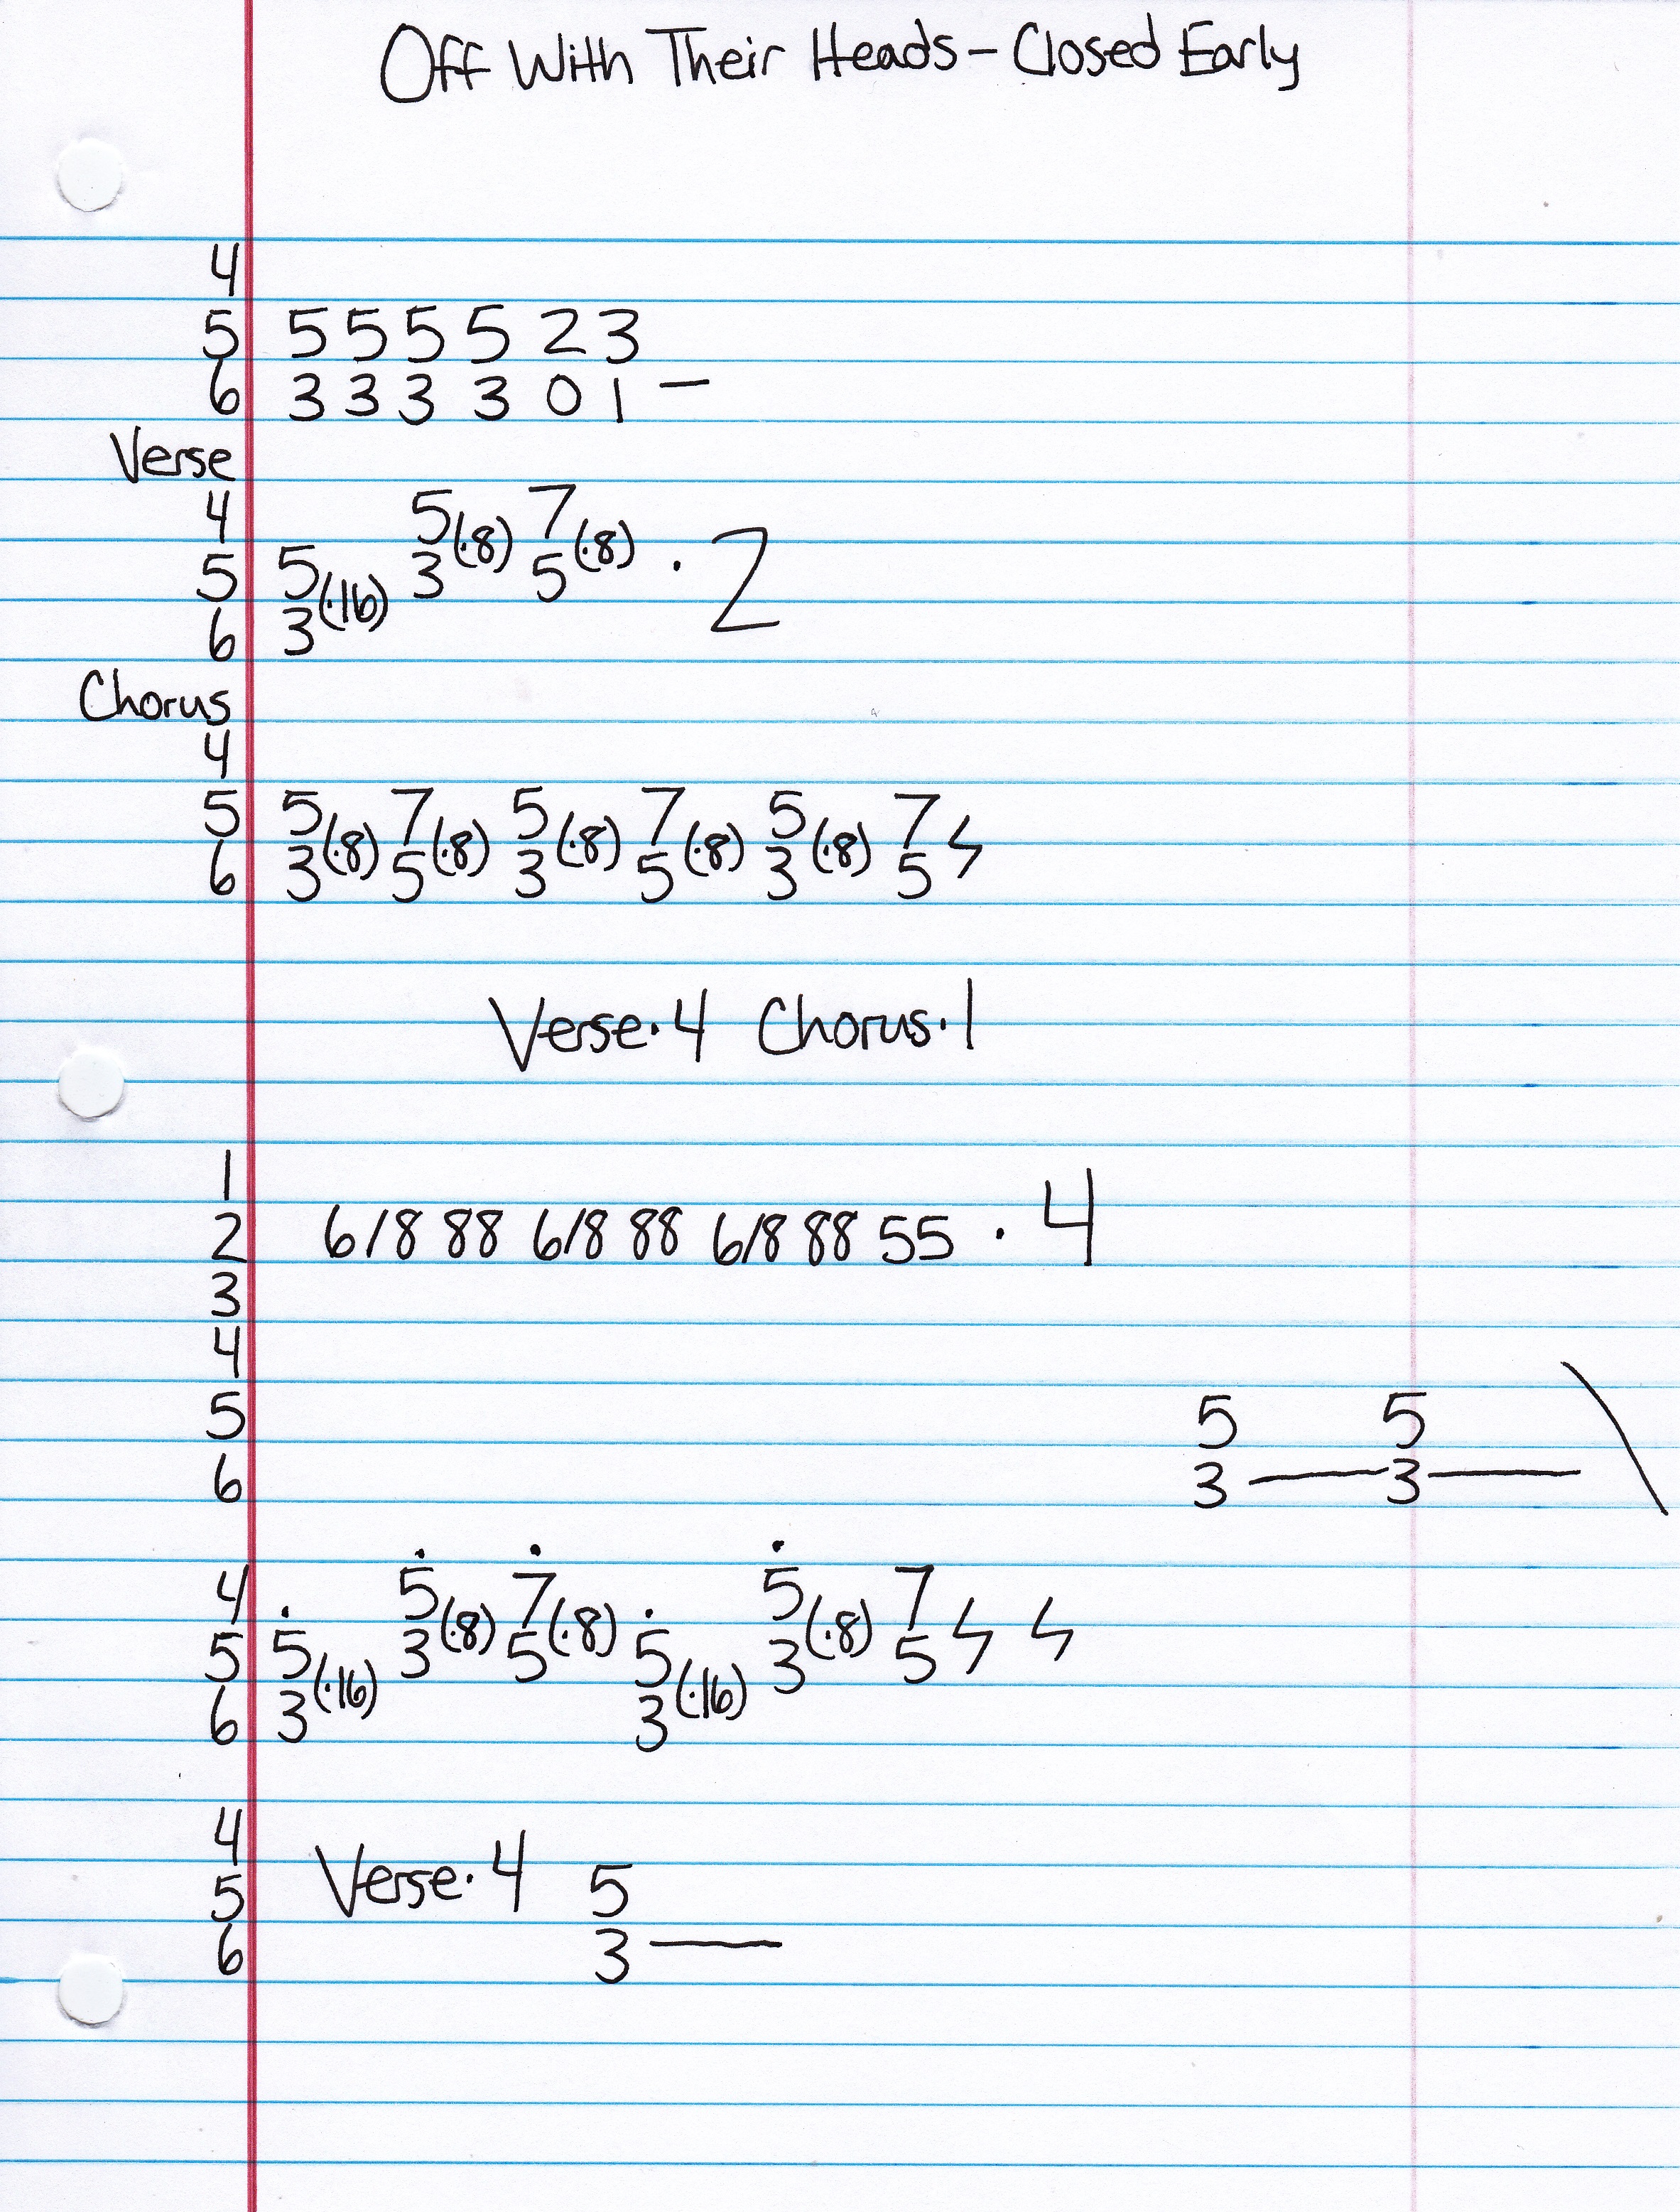 Off With Their Heads - Closed Early
4
5 5 5 5 5 2 3
6 3 3 3 3 0 1 —
Verse
4 5(·8) 7(·8)
5 5(·16) 3 5 · 2
6 3
Chorus
4
5 5(·8) 7(·8) 5(·8) 7(·8) 5(·8) 7
6 3 5 3 5 3 5
Verse·4 Chorus·1
1
2 6/8 88 6/8 88 6/8 88 55 · 4
3
4
5 5 5
6 3 — 3 —
4 5(·8) 7(·8) 5(·8) 7
5 5(·16) 3 5 5(·16) 3 5
6 3 3
4
5 Verse·4 5
6 3 —